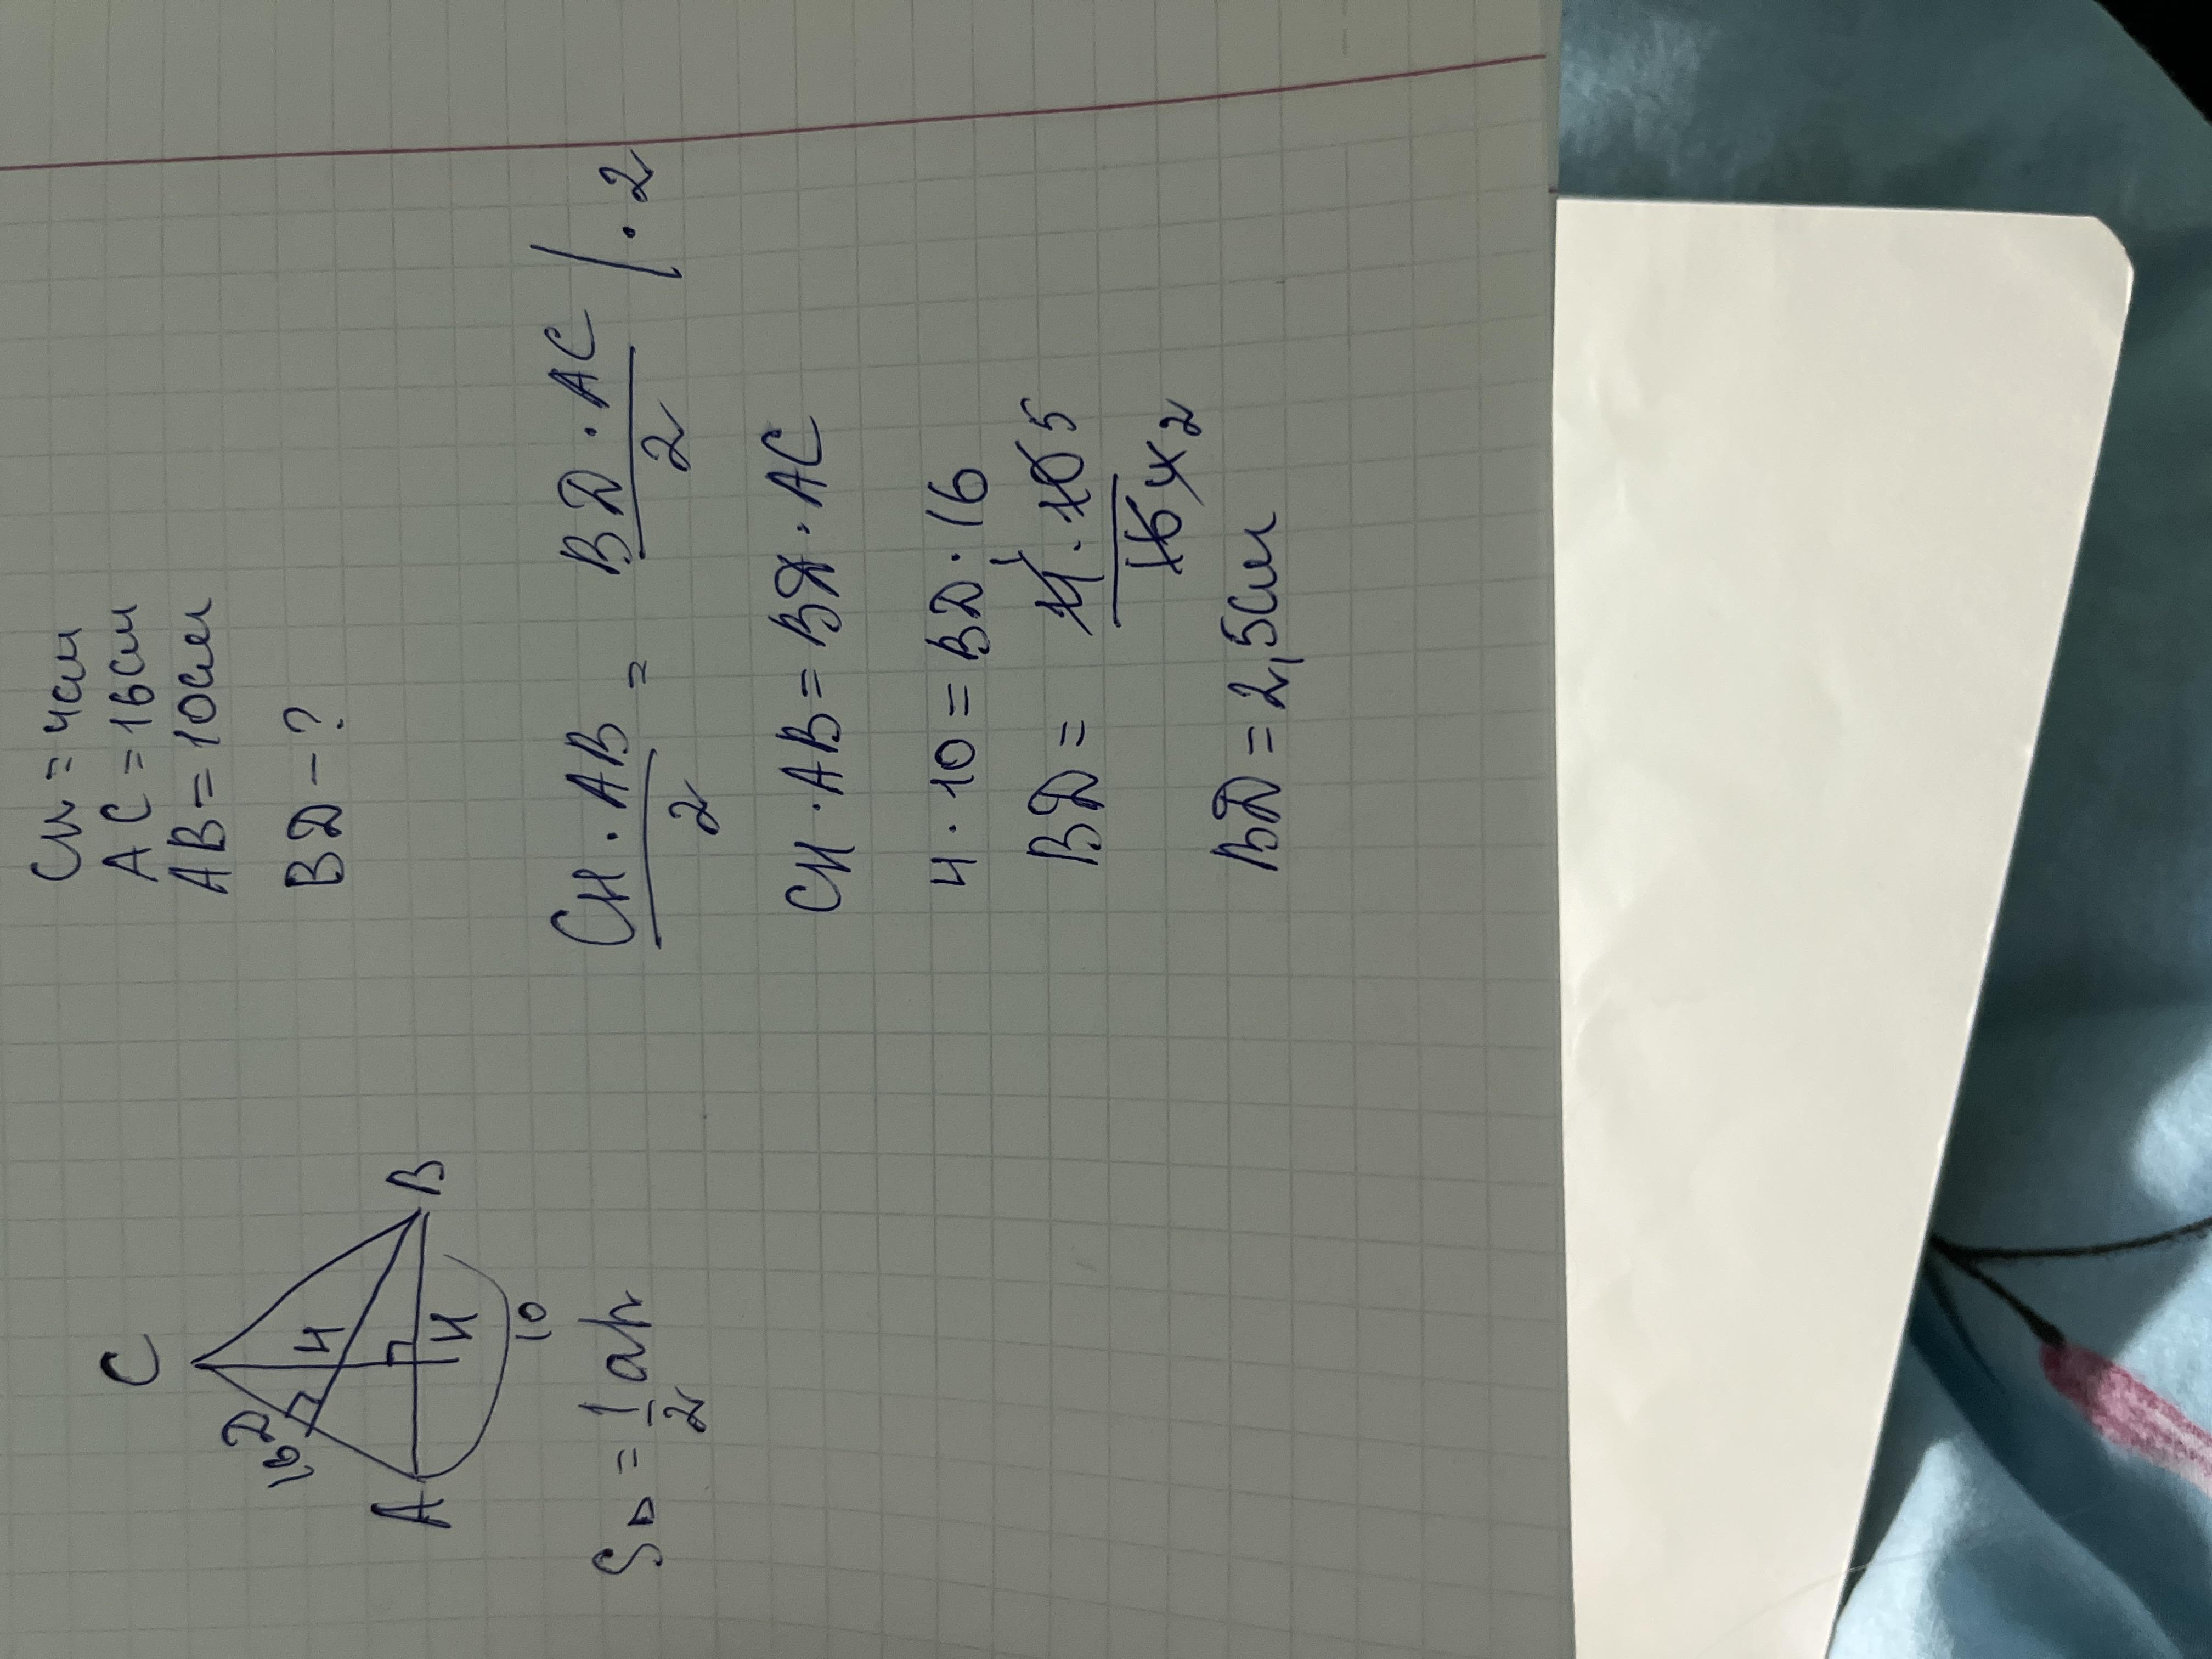 CH = 4см
AC = 16см
AB = 10см
BD - ?
C
D
16
4
A
H
B
10
S△ = 1/2 ah
CH · AB / 2 = BD · AC / 2 | · 2
CH · AB = BD · AC
4 · 10 = BD · 16
BD = 4 1 · 10 5 / 16 4 2
BD = 2,5см